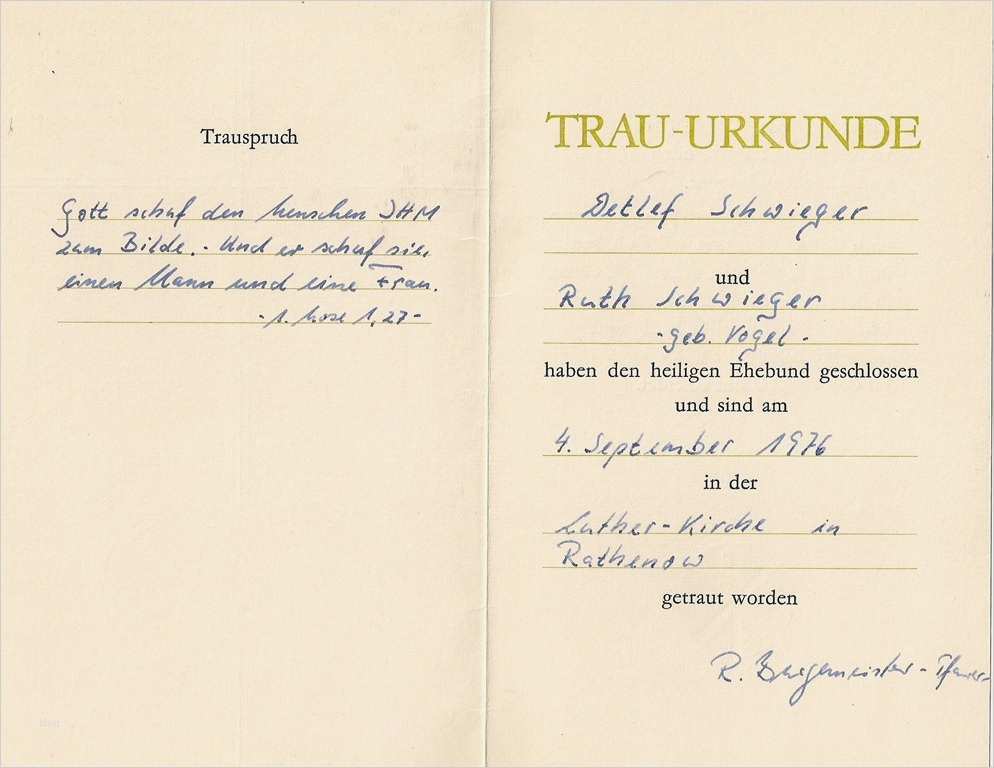 Trauspruch
Gott schuf den Menschen IHM
zum Bilde. - Und er schuf sie,
einen Mann und eine Frau.
- 1. Mose 1,27 -
TRAU-URKUNDE
Detlef Schwieger
und
Ruth Schwieger
- geb. Vogel -
haben den heiligen Ehebund geschlossen
und sind am
4. September 1976
in der
Luther-Kirche in
Rathenow
getraut worden
R. Burgemeister - Pfarrer-